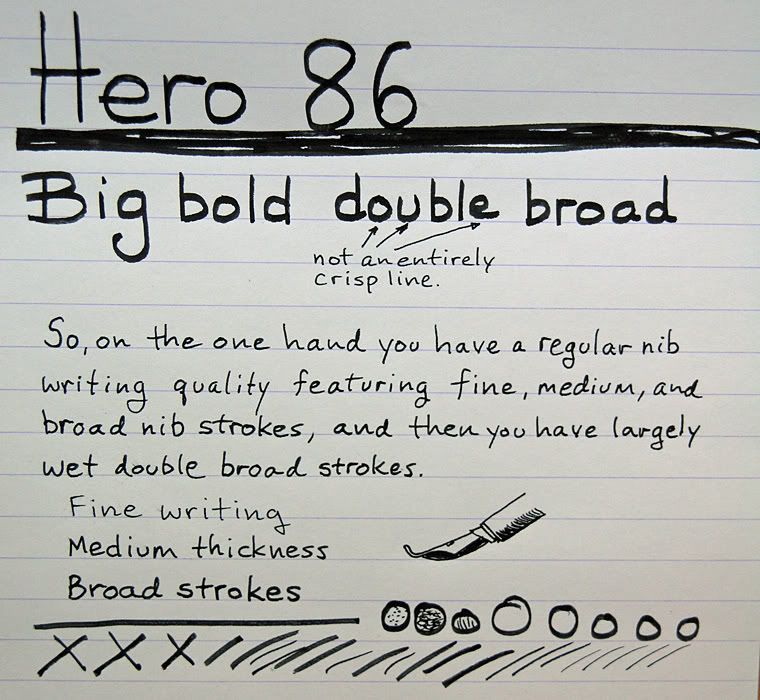 Hero 86
Big bold double broad
not an entirely
crisp line.
So, on the one hand you have a regular nib
writing quality featuring fine, medium, and
broad nib strokes, and then you have largely
wet double broad strokes.
Fine writing
Medium thickness
Broad strokes